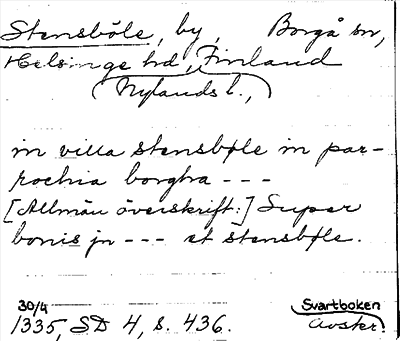 Stensböle, by, Borgå sn,
Helsinge hd, Finland
(Nylands l.,)
in villa stensbøle in par-
rochia borgha ---
[Allmän överskrift:] Super
bonis jn --- et stensbøle.
30/4 Svartboken
1335, SD 4, s. 436. Avskr.